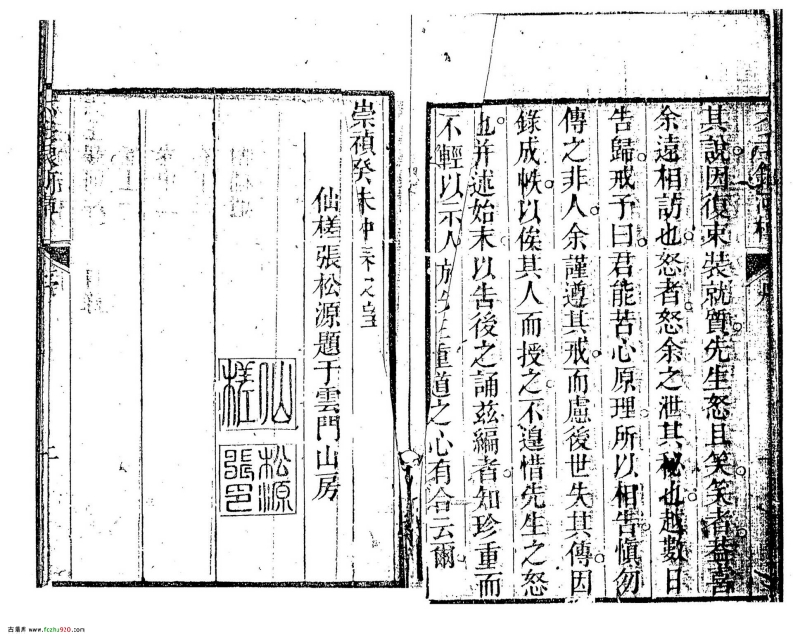 其說因復束裝就質先生怒且笑笑者蓋喜
余遠相訪也怒者怒余之泄其秘也越數日
告歸戒予曰君能苦心原理所以相告慎勿
傳之非人余謹遵其戒而慮後世失其傳因
錄成帙以俟其人而授之不遑惜先生之怒
也并述始末以告後之誦茲編者知珍重而
不輕以示人 重道之心有合云爾
崇禎癸未仲 望
仙槎張松源題于雲門山房
仙槎
松源張印
www.fozhu920.com